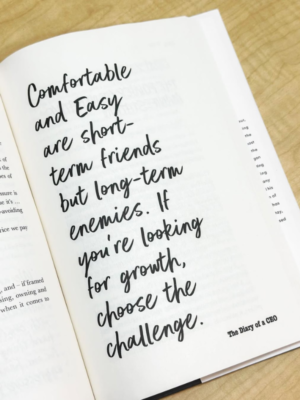 Comfortable
and Easy
are short-
term friends
but long-term
enemies. If
you're looking
for growth,
choose the
challenge.
The Diary of a CEO
of
the
es of
e it's ...
-avoiding
rice we pay
, and - if framed
ning, owning and
when it comes to